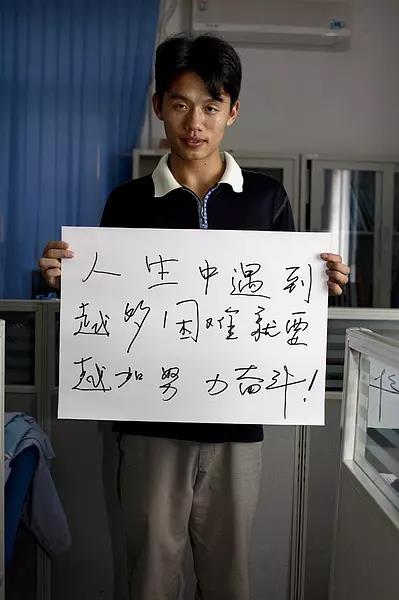 人生中遇到
越的困难就要
越加努力奋斗！